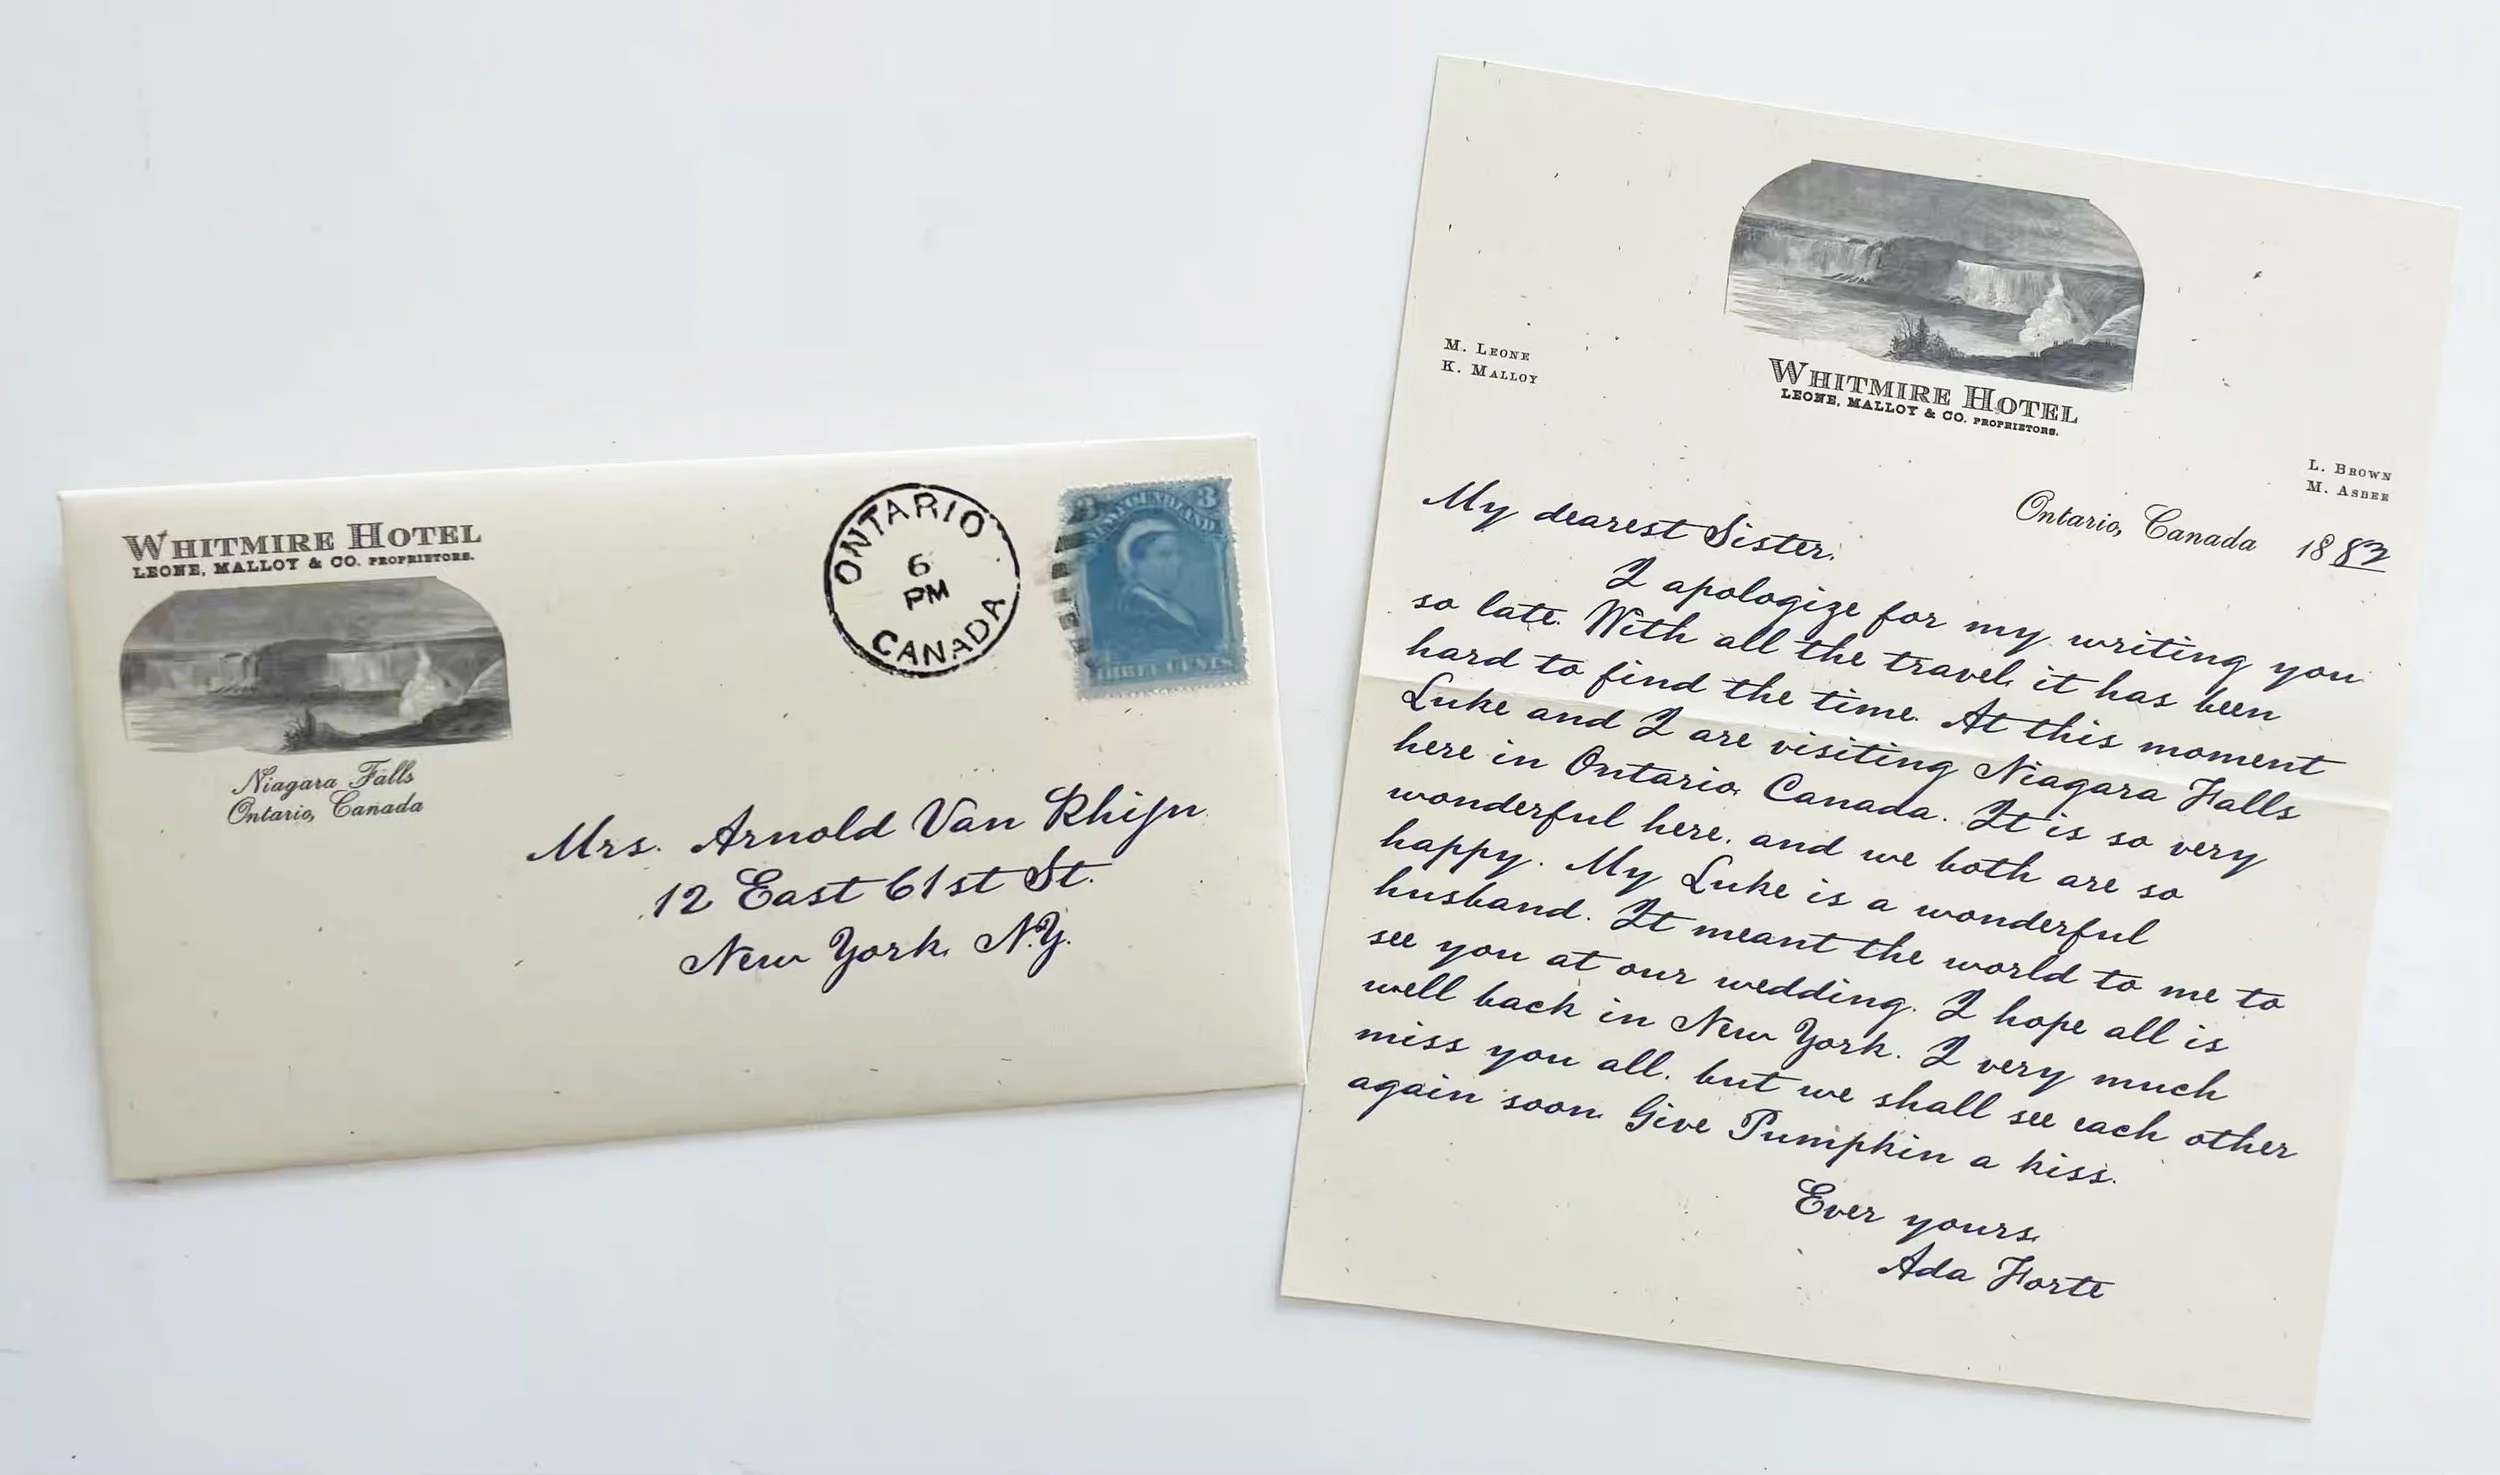 WHITMIRE HOTEL
LEONE, MALLOY & CO. PROPRIETORS.
Niagara Falls
Ontario, Canada
ONTARIO
6
PM
CANADA
3 3
NEWFOUNDLAND
THREE CENTS
Mrs. Arnold Van Rhijn
12 East 61st St.
New York, N.Y.
WHITMIRE HOTEL
LEONE, MALLOY & CO. PROPRIETORS.
M. LEONE
K. MALLOY
L. BROWN
M. ASBEE
Ontario, Canada 1883
My dearest Sister,
I apologize for my writing you
so late. With all the travel, it has been
hard to find the time. At this moment
Luke and I are visiting Niagara Falls
here in Ontario, Canada. It is so very
wonderful here, and we both are so
happy. My Luke is a wonderful
husband. It meant the world to me to
see you at our wedding. I hope all is
well back in New York. I very much
miss you all, but we shall see each other
again soon. Give Pumpkin a kiss.
Ever yours,
Ada Forte